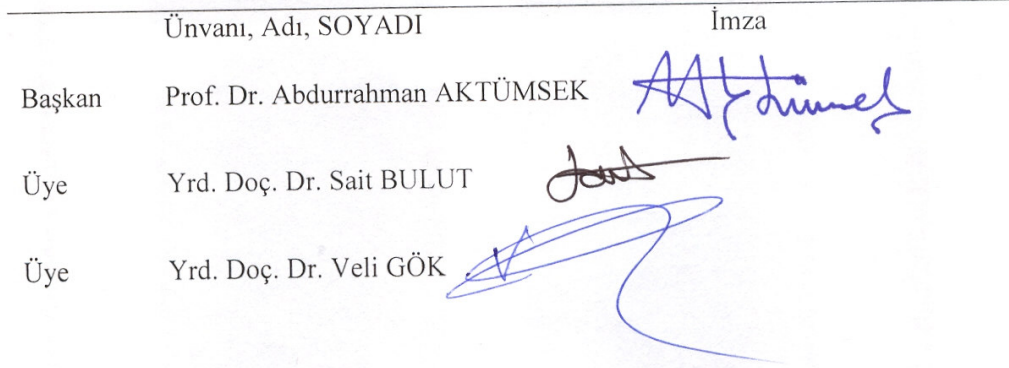 Ünvanı, Adı, SOYADI İmza
Başkan Prof. Dr. Abdurrahman AKTÜMSEK
Üye Yrd. Doç. Dr. Sait BULUT
Üye Yrd. Doç. Dr. Veli GÖK